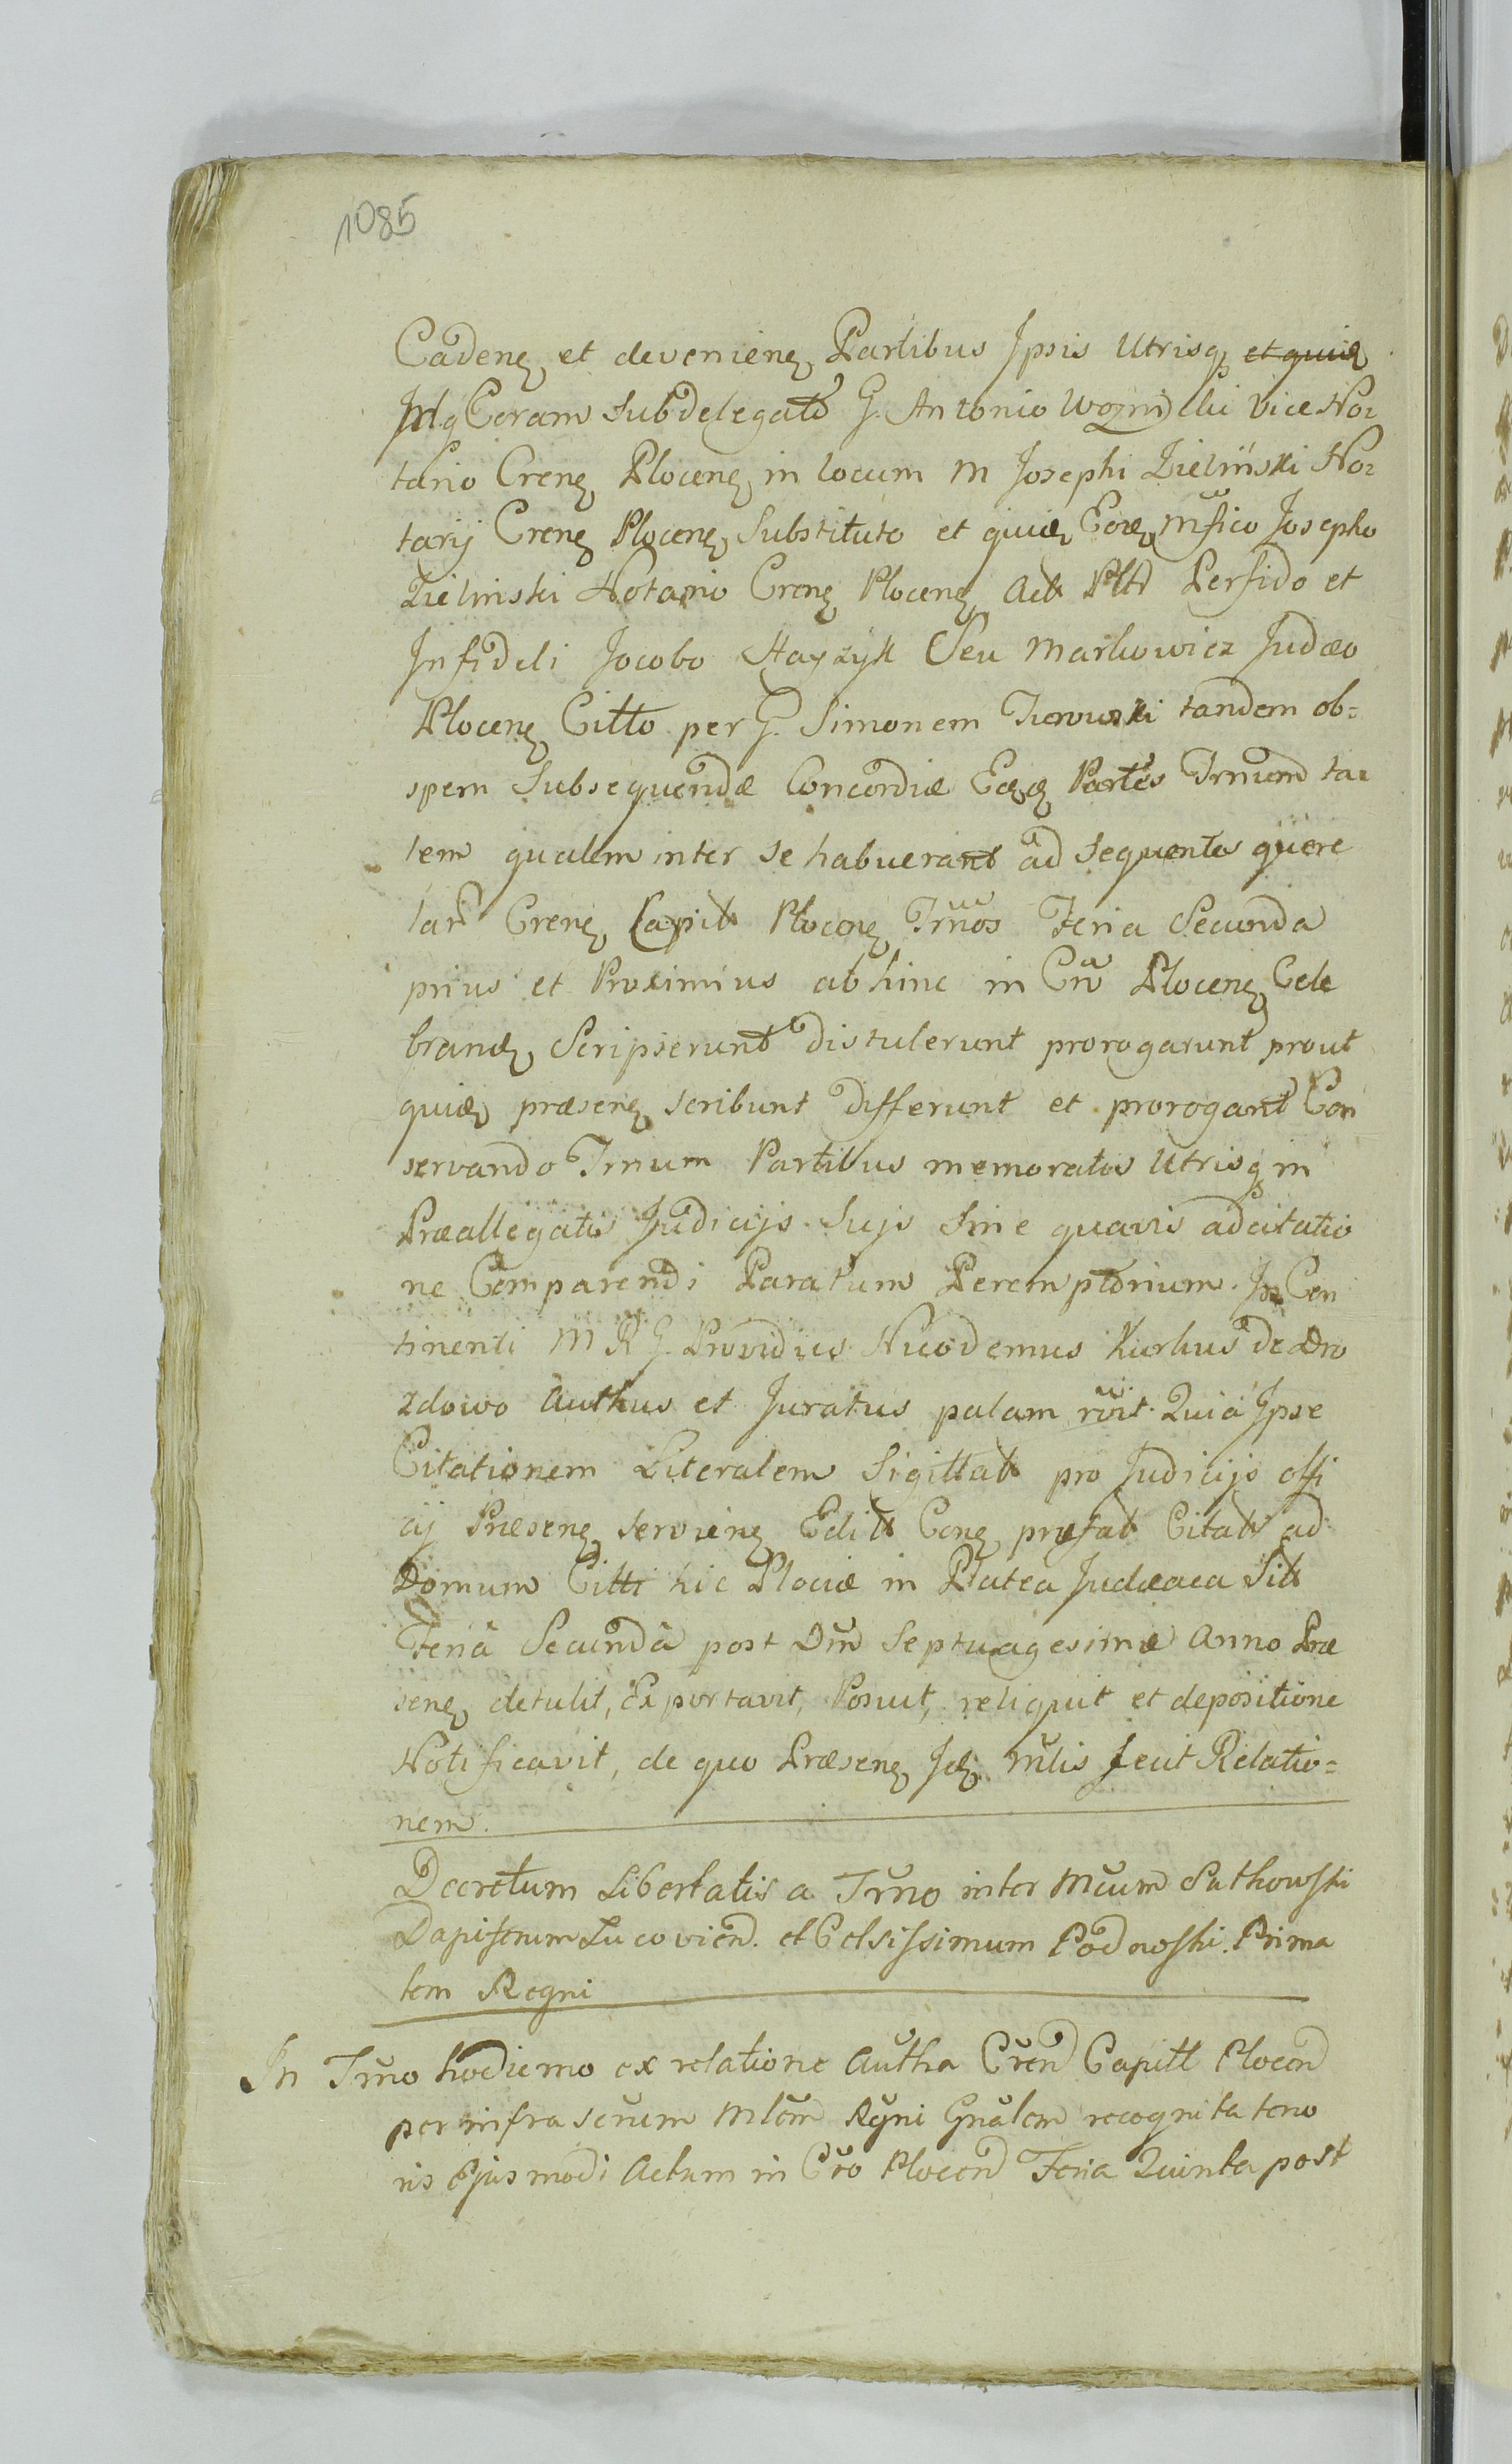 1085
Cadenꝫ et devenienꝫ Partibus Ipsis Utrisqꝫ et quidꝫ
Coram Subdelegato G. Antonio Woznicki Vice No=
tario Crenꝫ Plocenꝫ in locum M Josephi Zielinski No=
tarij Crenꝫ Plocenꝫ Substituto et quidꝫ Eodꝫ Mfico Josepho
Zielinski Notario Crenꝫ Plocenꝫ Actt Pltt Perfido et
Infideli Jocobo Hayzyk Seu Markowicz Judæo
Plocenꝫ Citto per G. Simonem tandem ob=
spem Subsequendæ Concordiæ Eædꝫ Partes Trnum ta=
lem qualem inter se habuerant ad sequentes quere
lar Crenꝫ Capitt Plocenꝫ Trnos Feria Secunda
prius et Proximius abhinc in Cro Plocenꝫ Cele
brandꝫ Scripserunt distulerunt prorogarunt prout
quidꝫ præsenꝫ scribunt differunt et prorogant Con
servando Trnum Partibus memoratis Utrisqꝫ in
Præallegatis Judicijs Sujs Sine quavis adcitatio
ne Comparendi Paratum Peremptorium. In Con
tinenti M R G. Providus Nicodemus Kurkus de Dro
zdowo Authus et Juratus palam rvit Quia Ipse
Citationem Literalem Sigillatt pro Judicijs offi
cij Præsenꝫ servienꝫ Editt Conꝫ præfatt Citatt ad
Domum Citti hic Plociæ in Platea Judæaca Sitt
Feria Secunda post Dnm Septuagesimæ Anno Præ
senꝫ detulit, Exportavit, Posuit, reliquit et depositione
Notificavit, de quo Præsenꝫ Idꝫ Mlis fecit Relatio=
nem.
Decretum Libertatis a Trno inter Mcum Sutkowski
Dapiferum Lucovien. et Celsissimum Podoski. Prima
tem Regni
In Trno hodierno ex relatione Autha Cren Capitt Plocen
per infra scrum Mlem Rgni Gnalem recognita teno
ris Ejusmodi Actum in Cro Plocen Feria Quinta post